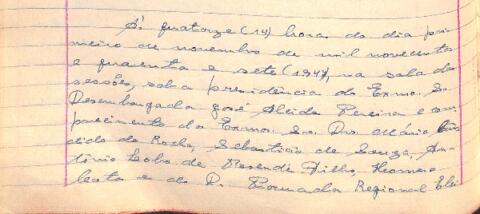 Às quatorze (14) horas do dia pri
meiro de novembro de mil novecentos
e quarenta e sete (1947), na sala das
sessões, sob a presidência do Exmo. Sr.
Desembargador José Alcides Pereira e com
parecimento dos Exmos. Srs. Drs. Mário Cân
dido da Rocha, Sebastião de Souza, An-
tônio Lobo de Resende Filho, Homero
Costa e do Dr. Procurador Regional Elei